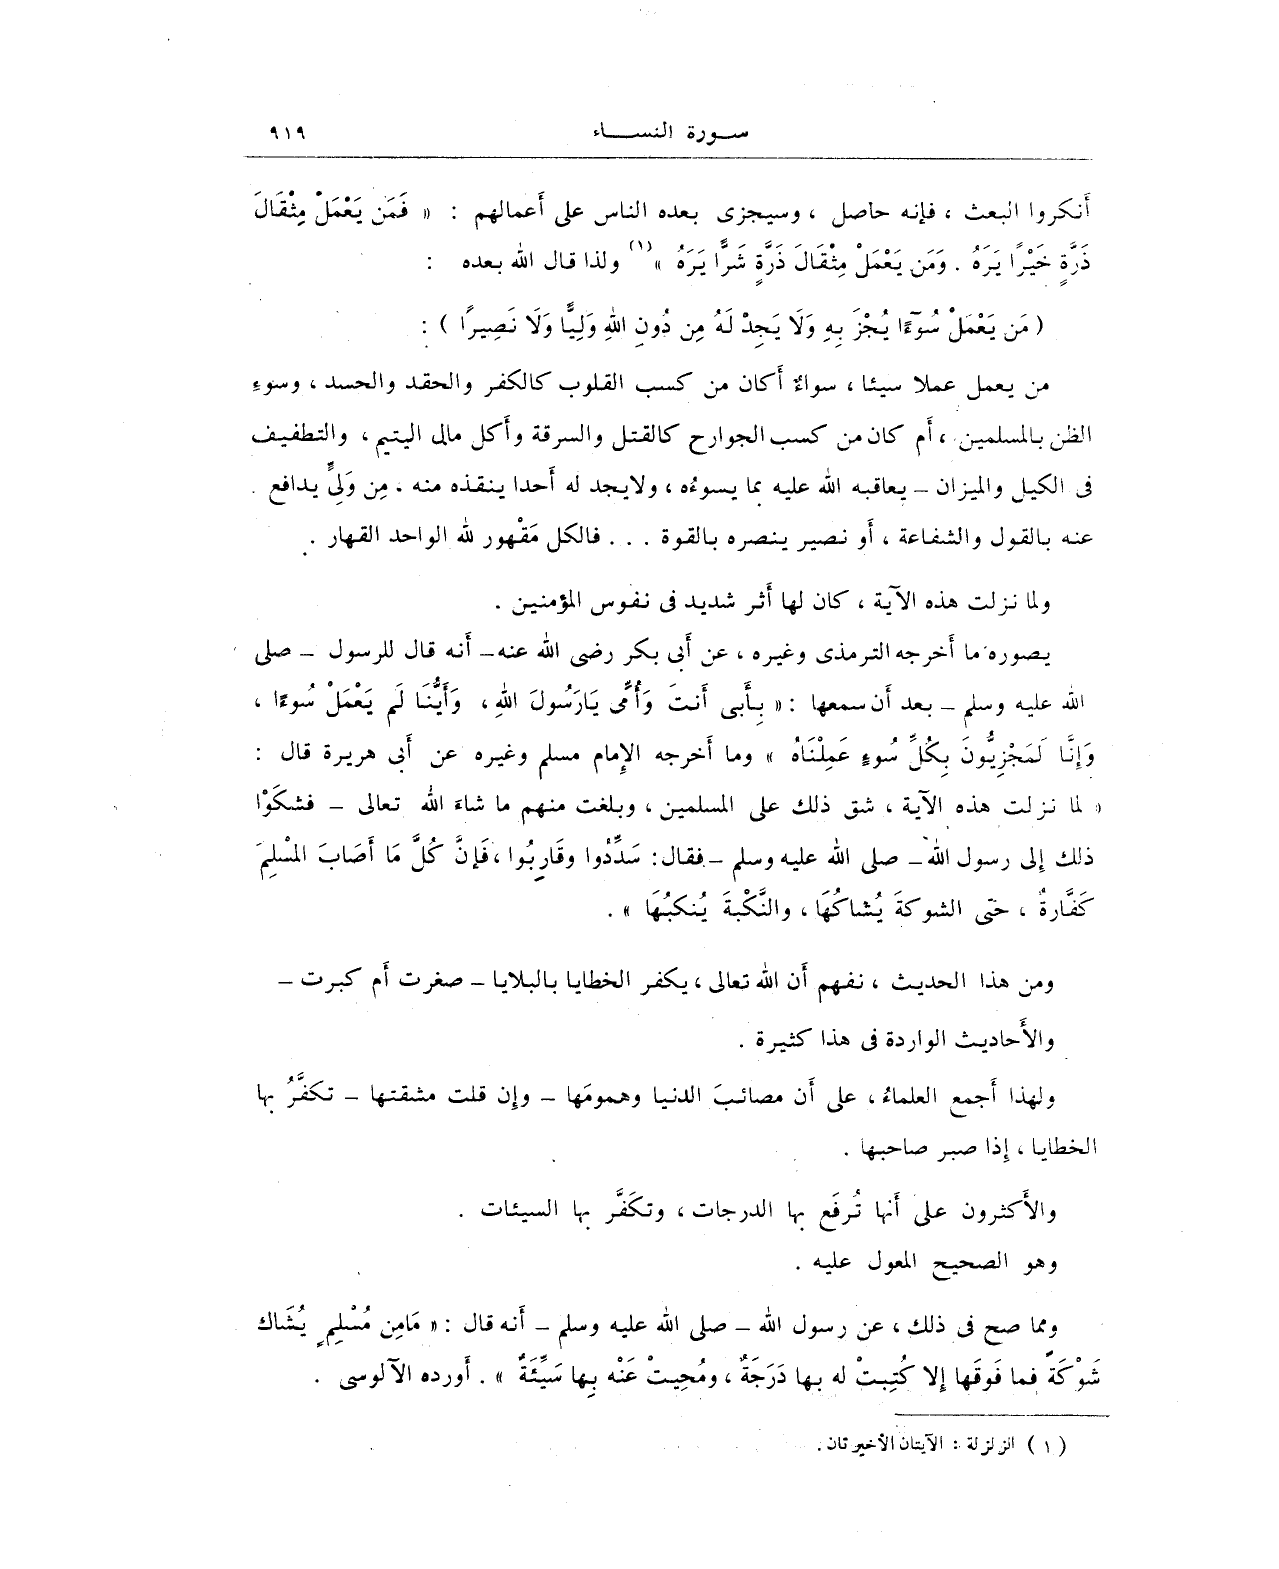 سورة النساء ٩١٩
أَنكروا البعث ، فإنه حاصل ، وسيجزى بعده الناس على أَعمالهم : « فَمَن يَعْمَلْ مِثْقَالَ
ذَرَّةٍ خَيْرًا يَرَهُ . وَمَن يَعْمَلْ مِثْقَالَ ذَرَّةٍ شَرًّا يَرَهُ »(١) ولذا قال الله بعده :
( مَن يَعْمَلْ سُوٓءًا يُجْزَ بِهِ وَلَا يَجِدْ لَهُ مِن دُونِ اللهِ وَلِيًّا وَلَا نَصِيرًا ) :
من يعمل عملا سيئا ، سواءٌ أَكان من كسب القلوب كالكفر والحقد والحسد ، وسوءِ
الظن بالمسلمين ، أَم كان من كسب الجوارح كالقتل والسرقة وأَكل مال اليتيم ، والتطفيف
فى الكيل والميزان – يعاقبه الله عليه بما يسوءُه ، ولايجد له أَحدا ينقذه منه . مِن وَلِىٍّ يدافع .
عنه بالقول والشفاعة ، أَو نصير ينصره بالقوة . . . فالكل مَقْهور لله الواحد القهار .
ولما نزلت هذه الآية ، كان لها أَثر شديد فى نفوس المؤمنين .
يصوره ما أَخرجه الترمذى وغيره ، عن أَبى بكر رضى الله عنه – أَنه قال للرسول – صلى
الله عليه وسلم – بعد أَن سمعها : « بِأَبى أَنتَ وَأُمِّى يَارَسُولَ اللهِ ، وَأَيُّنَا لَم يَعْمَلْ سُوءًا ،
وَإِنَّا لَمَجْزِيُّونَ بِكُلِّ سُوءٍ عَمِلْنَاهُ » وما أَخرجه الإِمام مسلم وغيره عن أَبى هريرة قال :
« لما نزلت هذه الآية ، شق ذلك على المسلمين ، وبلغت منهم ما شاءَ الله تعالى – فشكَوْا
ذلك إِلى رسول الله – صلى الله عليه وسلم – فقال : سَدِّدُوا وقَارِبُوا ، فَإِنَّ كُلَّ مَا أَصَابَ المُسْلِمَ
كَفَّارةٌ ، حتى الشوكةَ يُشاكُهَا ، والنَّكْبةَ يُنكبُهَا » .
ومن هذا الحديث ، نفهم أَن الله تعالى ، يكفر الخطايا بالبلايا – صغرت أَم كبرت –
والأَحاديث الواردة فى هذا كثيرة .
ولهذا أَجمع العلماءُ ، على أَن مصائبَ الدنيا وهمومَها – وإِن قلت مشقتها – تكفَّرُ بها
الخطايا ، إِذا صبر صاحبها .
والأَكثرون على أَنها تُرفَع بها الدرجات ، وتكفَّر بها السيئات .
وهو الصحيح المعول عليه .
ومما صح فى ذلك ، عن رسول الله – صلى الله عليه وسلم – أَنه قال : « مَامِن مُسْلِمٍ يُشَاك
شَوْكَةً فما فَوقَها إِلا كُتِبتْ له بها دَرَجَةٌ ، ومُحِيتْ عَنْه بِها سَيِّئَةٌ » . أَورده الآلوسى .
( ١ ) الزلزلة : الآيتان الأخيرتان .